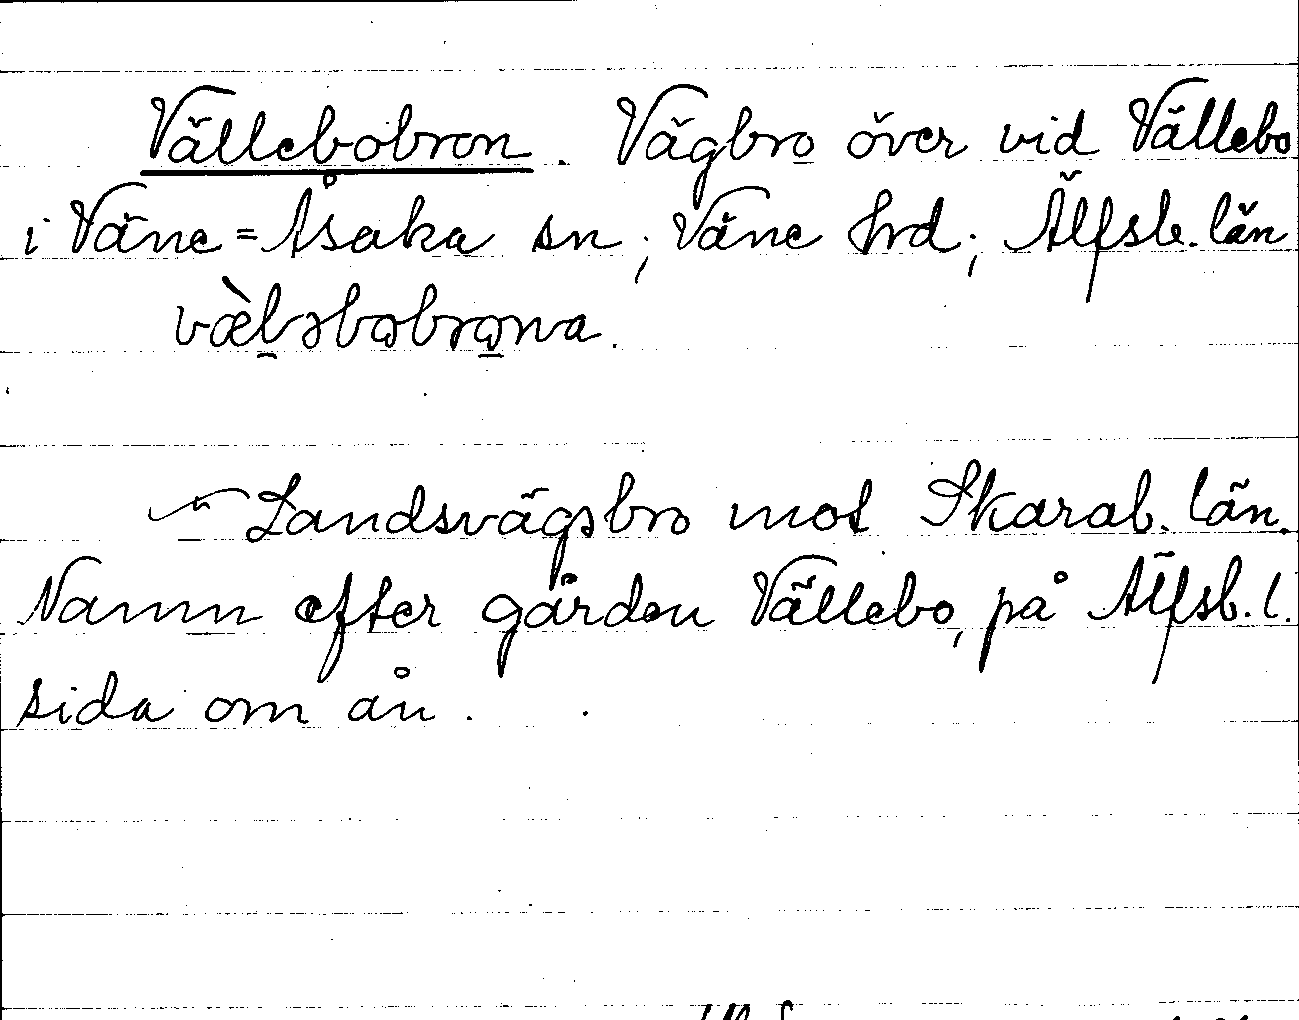 Vällebobron. Vägbro över vid Vällebo
i Väne=Åsaka sn, Väne hrd, Älfsb. län
væ̀lɔbobrona.
Landsvägsbro mot Skarab. län.
Namn efter gården Vällebo, på Älfsb. l.
sida om ån.